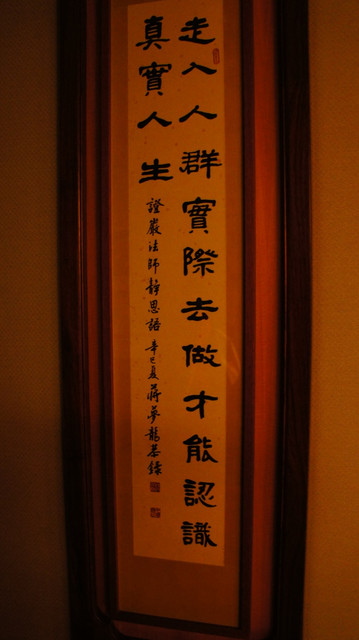 走入人群實際去做才能認識
真實人生
證嚴法師靜思語 辛巳夏蔣夢龍恭錄